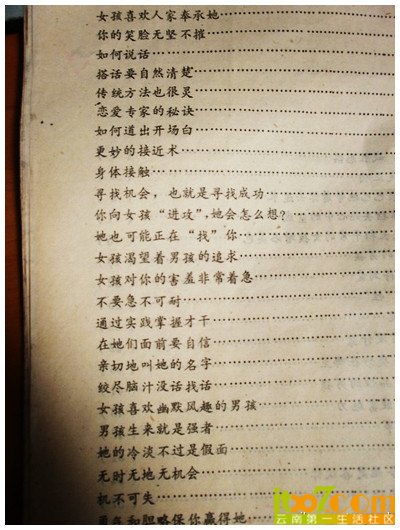 女孩喜欢人家奉承她……………………
你的笑脸无坚不摧……………………
如何说话……………………
搭话要自然清楚……………………
传统方法也很灵……………………
恋爱专家的秘诀……………………
如何道出开场白……………………
更妙的接近术……………………
身体接触……………………
寻找机会，也就是寻找成功……………………
你向女孩“进攻”，她会怎么想？……………………
她也可能正在“找”你……………………
女孩渴望着男孩的追求……………………
女孩对你的害羞非常着急……………………
不要急不可耐……………………
通过实践掌握才干……………………
在她们面前要自信……………………
亲切地叫她的名字……………………
绞尽脑汁没话找话……………………
女孩喜欢幽默风趣的男孩……………………
男孩生来就是强者……………………
她的冷淡不过是假面……………………
无时无地无机会……………………
机不可失……………………
勇气和胆略保你赢得她……………………
云南第一生活社区